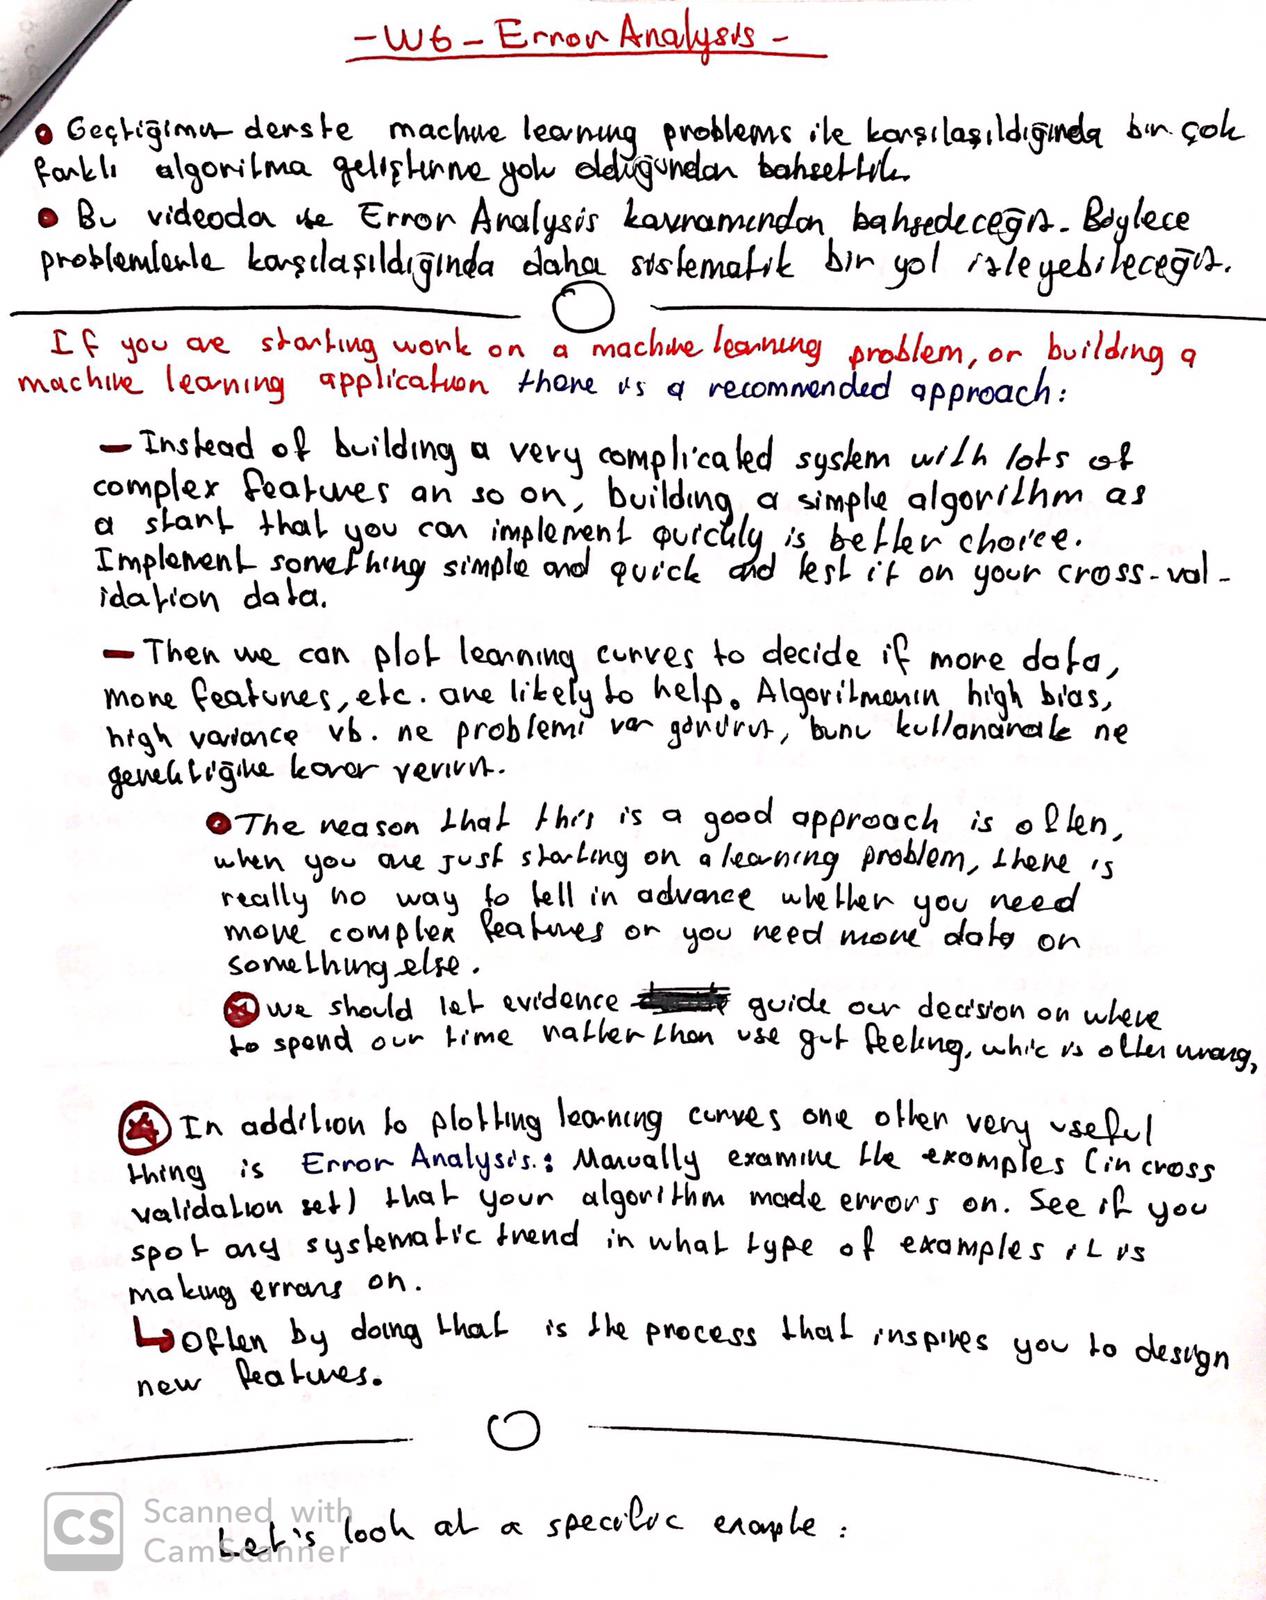 - W6 - Error Analysis -
• Geçtiğimiz derste machine learning problems ile karşılaşıldığında bir çok
farklı algoritma geliştirme yolu olduğundan bahsettik.
• Bu videoda ise Error Analysis kavramından bahsedeceğiz. Böylece
problemlerle karşılaşıldığında daha sistematik bir yol izleyebileceğiz.
If you are starting work on a machine learning problem, or building a
machine learning application there is a recommended approach:
- Instead of building a very complicated system with lots of
complex features an so on, building a simple algorithm as
a start that you can implement quickly is better choice.
Implement something simple and quick and test it on your cross-val-
idation data.
- Then we can plot learning curves to decide if more data,
more features, etc. are likely to help. Algoritmanın high bias,
high variance vb. ne problemi var görürüz, bunu kullanarak ne
gerektiğine karar veririz.
• The reason that this is a good approach is often,
when you are just starting on a learning problem, there is
really no way to tell in advance whether you need
more complex features or you need more data or
something else.
we should let evidence guide our decision on where
to spend our time rather than use gut feeling, whic is often wrong,
In addition to plotting learning curves one other very useful
thing is Error Analysis.: Manually examine the examples (in cross
validation set) that your algorithm made errors on. See if you
spot any systematic trend in what type of examples it is
making errors on.
↳ Often by doing that is the process that inspires you to design
new features.
Let's look at a specific example:
Scanned with
CamScanner
CS